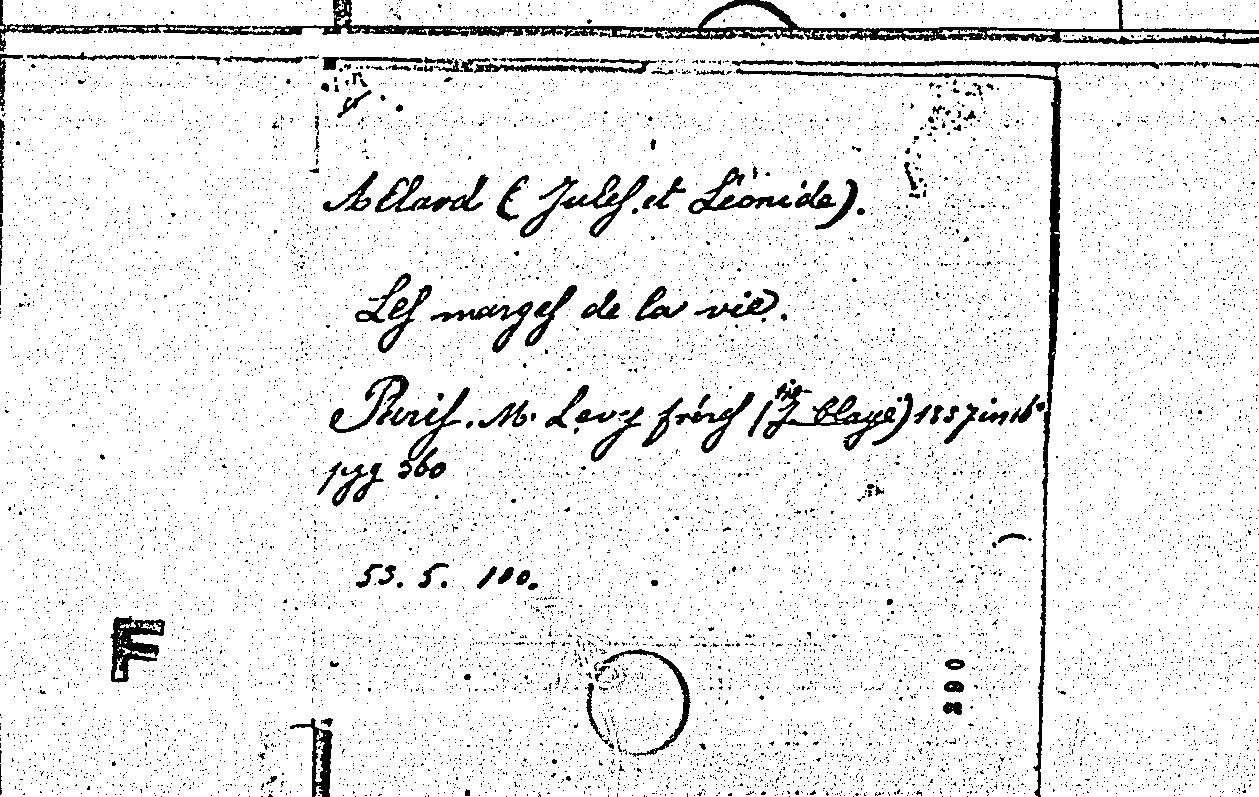 Allard (Jules et Léonide).
Les marges de la vie.
Paris. M. Levy frères (tip. J. Claye) 1857 in 16°
pgg 360
53. 5. 100.
F
290